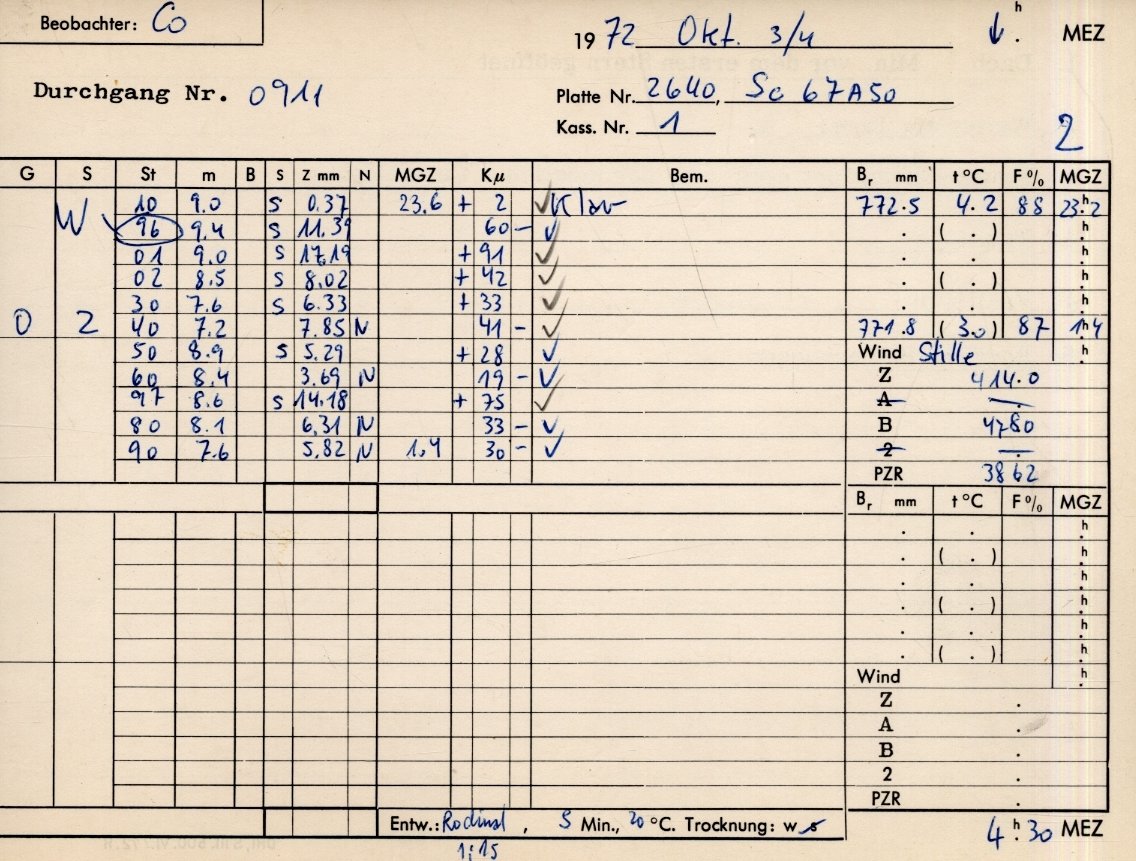 Beobachter: Co
1972 Okt. 3/4 h . MEZ
Durchgang Nr. 0911
Platte Nr. 2640, Sc 67A50
Kass. Nr. 1
2
G S St m B S Z mm N MGZ Kμ Bem. Br mm t °C F % MGZ
W 10 9.0 S 0.37 23.6 + 2 ✓ Klar 772.5 4.2 88 23h.2
96 9.4 S 11.39 60 - ✓ . ( . ) h.
01 9.0 S 17.19 + 91 ✓ . . h.
02 8.5 S 8.02 + 42 ✓ . ( . ) h.
30 7.6 S 6.33 + 33 ✓ . . h.
0 2 40 7.2 7.85 N 41 - ✓ 771.8 (3.0) 87 1h4
50 8.9 S 5.29 + 28 ✓ Wind Stille h.
60 8.4 3.69 N 19 - ✓ Z 414.0
97 8.6 S 14.18 + 75 ✓ A —
80 8.1 6.31 N 33 - ✓ B 4780
90 7.6 5.82 N 1.4 30 - ✓ 2 —
PZR 3862
Br mm t °C F % MGZ
. . h.
. ( . ) h.
. . h.
. ( . ) h.
. . h.
. ( . ) h.
Wind h.
Z .
A .
B .
2 .
PZR .
Entw.: Rodinal, 5 Min., 20 °C. Trocknung: w s
1:15
4h.30 MEZ